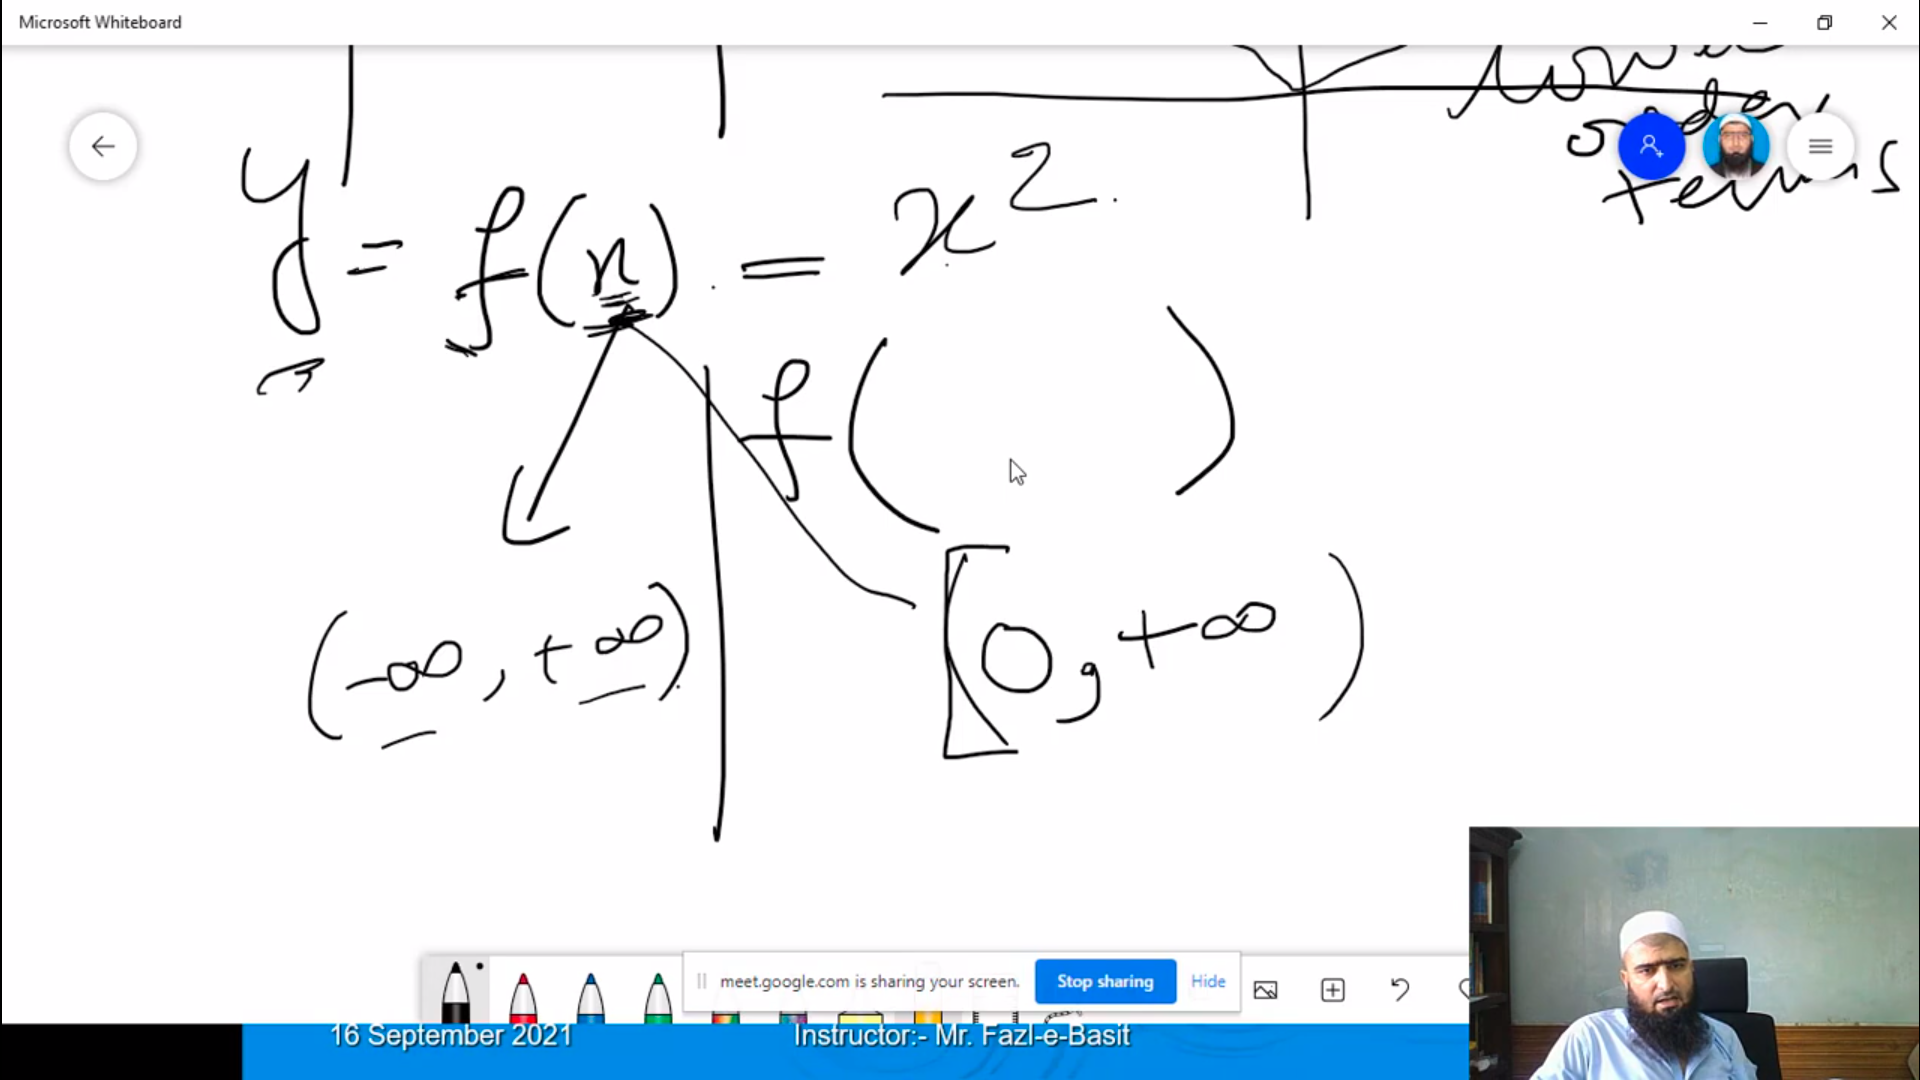 Microsoft Whiteboard
lower
order
terms
y = f(x) = x²
f( )
(-∞, +∞)
[0, +∞)
meet.google.com is sharing your screen.
Stop sharing
Hide
16 September 2021
Instructor:- Mr. Fazl-e-Basit